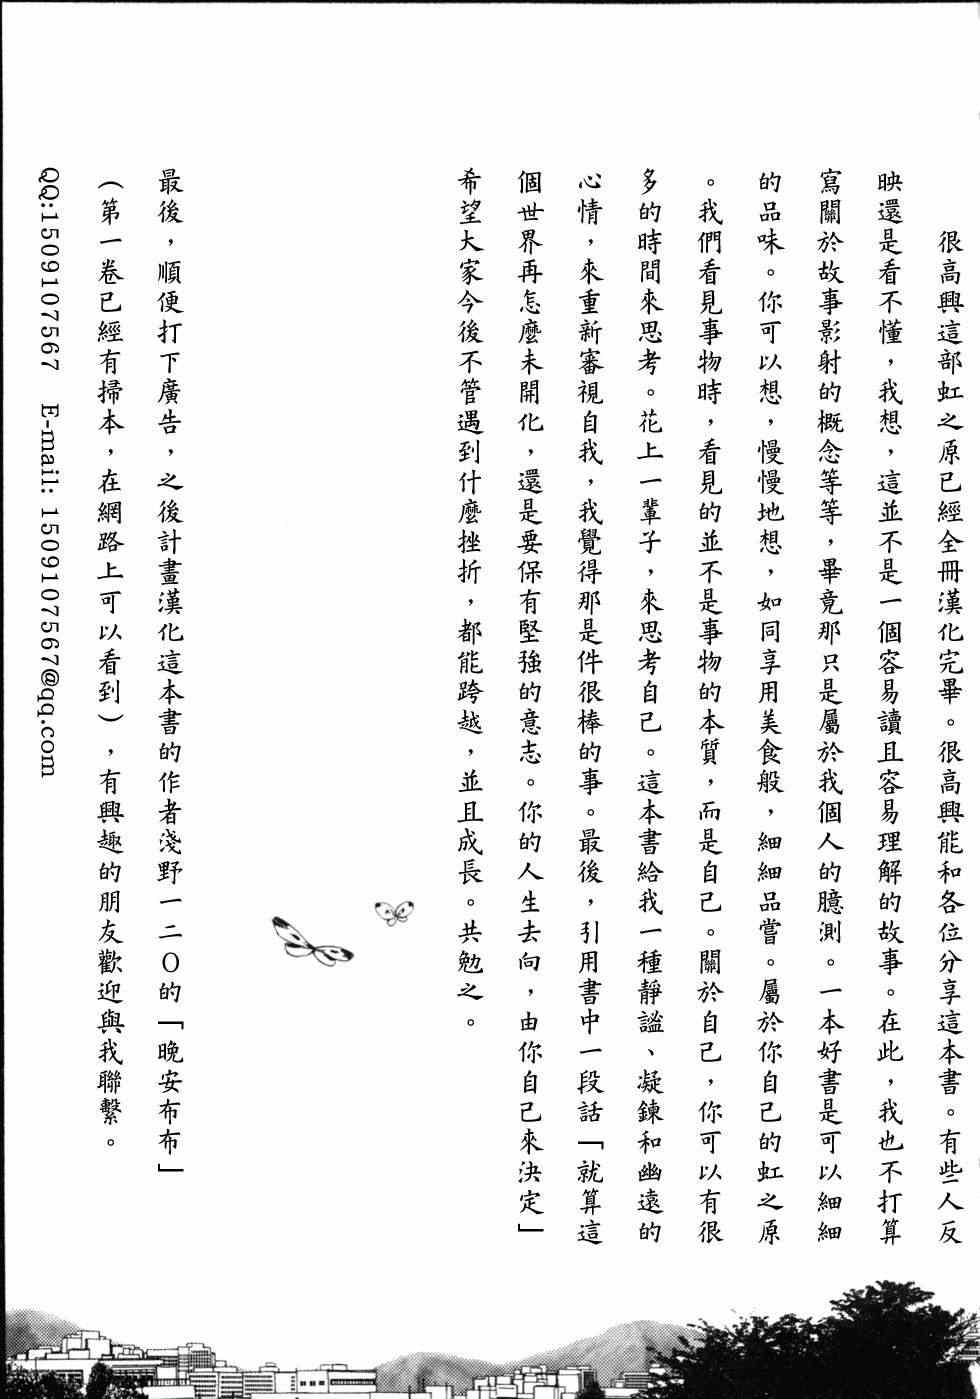 很高興這部虹之原已經全冊漢化完畢。很高興能和各位分享這本書。有些人反
映還是看不懂，我想，這並不是一個容易讀且容易理解的故事。在此，我也不打算
寫關於故事影射的概念等等，畢竟那只是屬於我個人的臆測。一本好書是可以細細
的品味。你可以想，慢慢地想，如同享用美食般，細細品嘗。屬於你自己的虹之原
。我們看見事物時，看見的並不是事物的本質，而是自己。關於自己，你可以有很
多的時間來思考。花上一輩子，來思考自己。這本書給我一種靜謐、凝鍊和幽遠的
心情，來重新審視自我，我覺得那是件很棒的事。最後，引用書中一段話「就算這
個世界再怎麼未開化，還是要保有堅強的意志。你的人生去向，由你自己來決定」
希望大家今後不管遇到什麼挫折，都能跨越，並且成長。共勉之。
最後，順便打下廣告，之後計畫漢化這本書的作者淺野一二〇的「晚安布布」
（第一卷已經有掃本，在網路上可以看到），有興趣的朋友歡迎與我聯繫。
QQ:1509107567 E-mail: 1509107567@qq.com